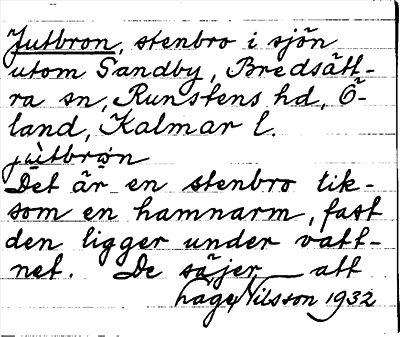 Jutbron, stenbro i sjön
utom Sandby, Bredsätt-
ra sn, Runstens hd, Ö-
land, Kalmar l.
jùtbrøn
Det är en stenbro lik-
som en hamnarm, fast
den ligger under vatt-
net. De säjer att
Nilsson 1932